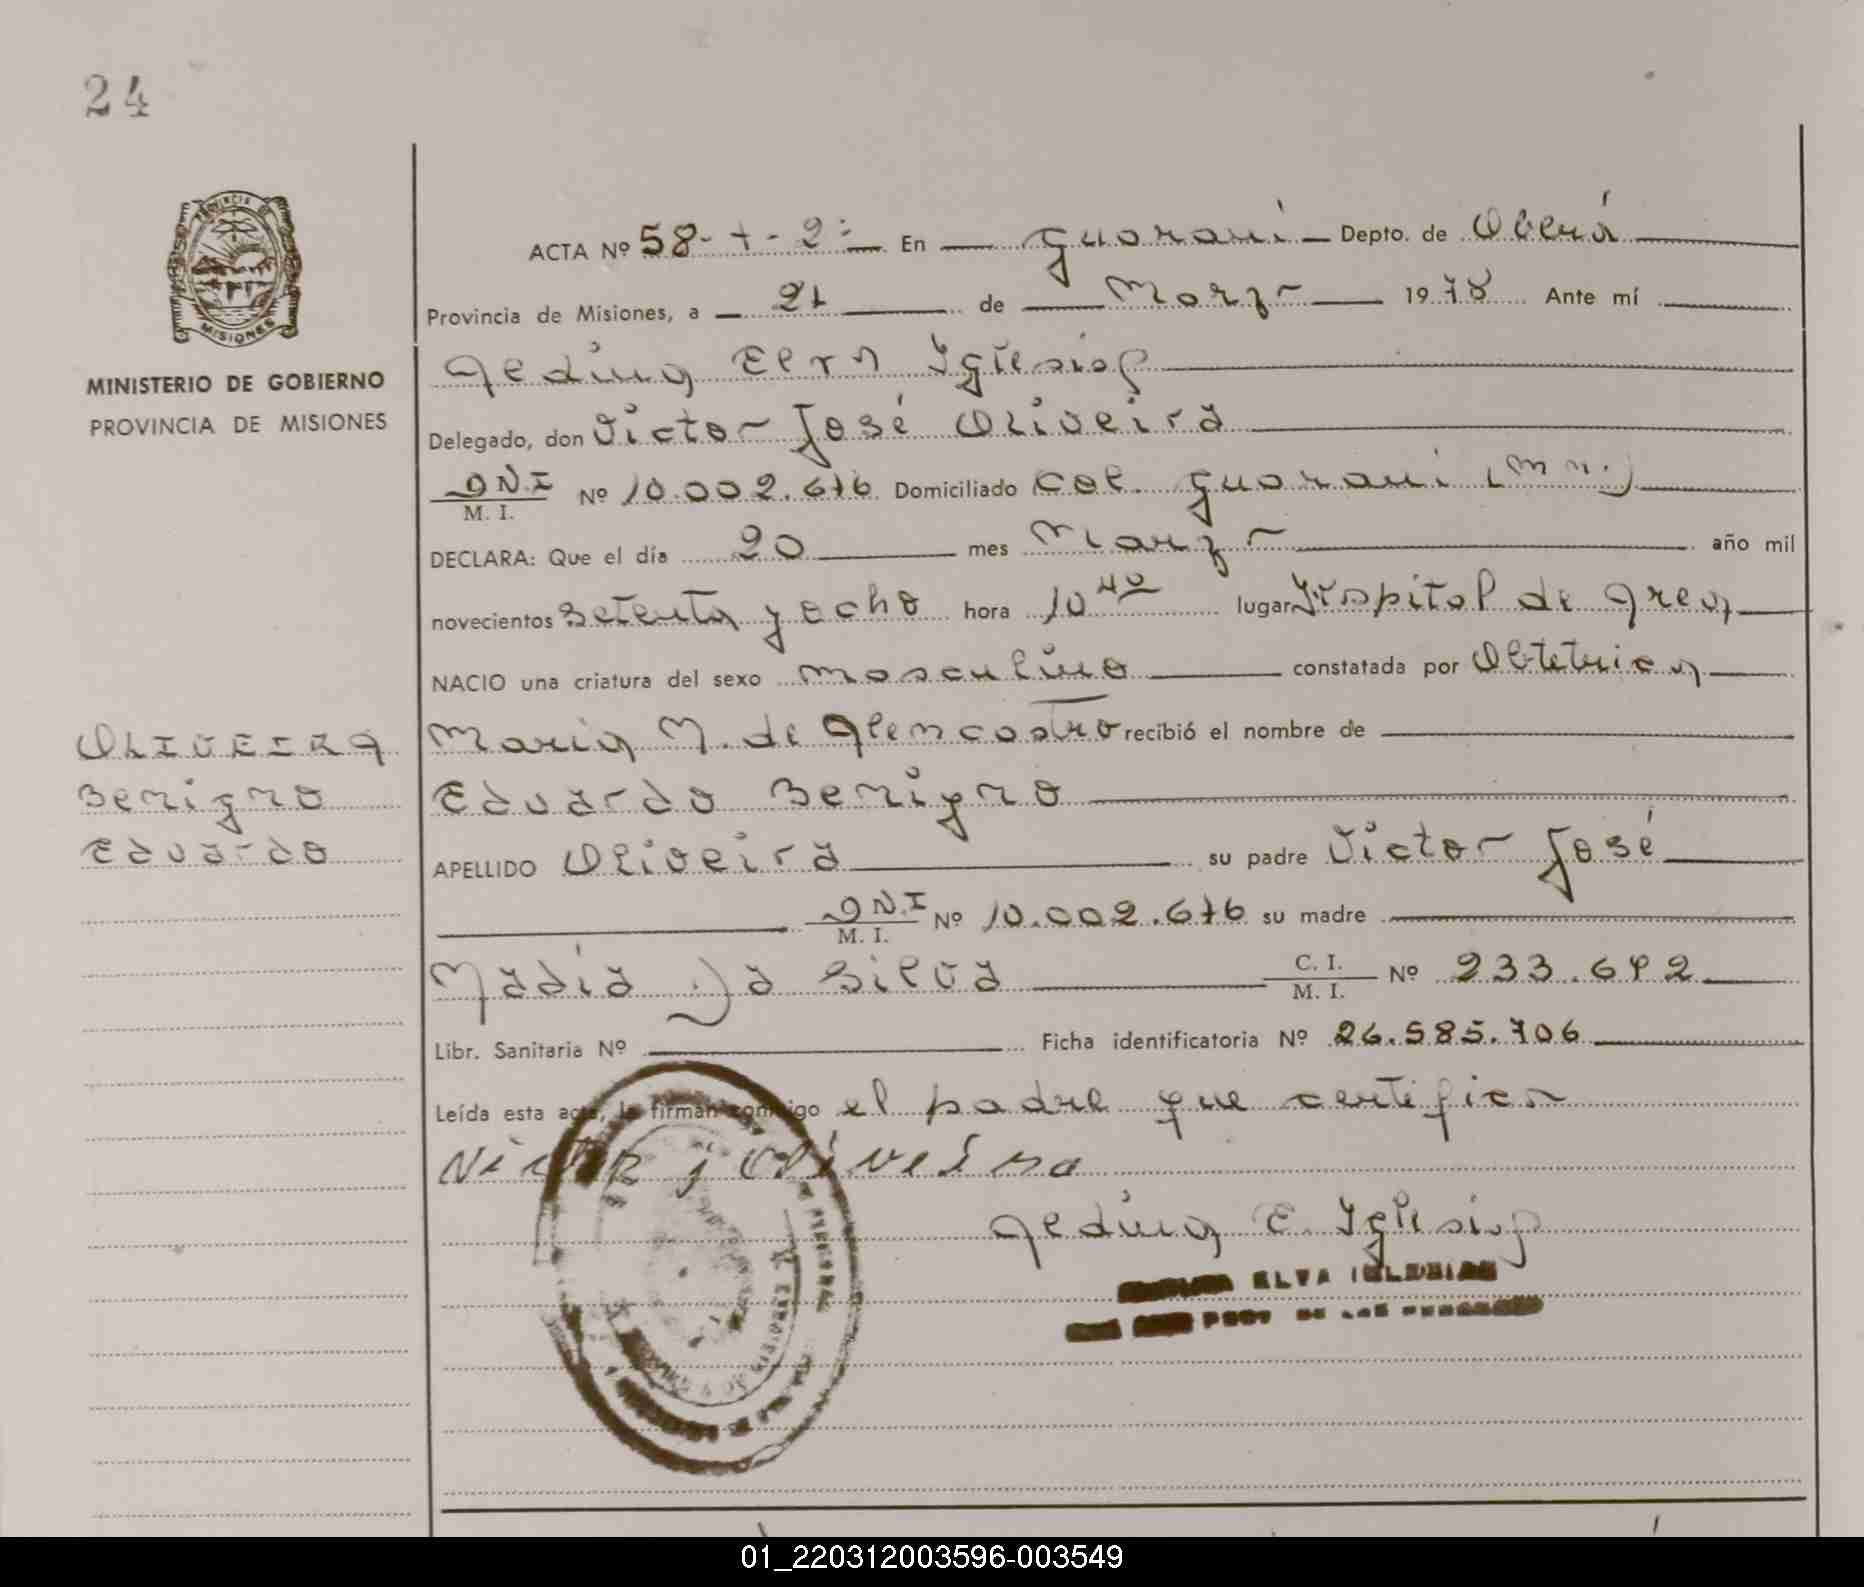 24
PROVINCIA DE
MISIONES
MINISTERIO DE GOBIERNO
PROVINCIA DE MISIONES
ACTA Nº 58- + - 2= En Guarani Depto. de Oberá
Provincia de Misiones, a 21 de Marzo 1978 Ante mí
Iglesias
Delegado, don Victor José Oliveira
DNI M. I. Nº 10.002.676 Domiciliado Col. Guarani (Mnes.)
DECLARA: Que el día 20 mes Marzo año mil
novecientos Setenta y ocho hora 10 40 lugar Hospital de Area
NACIO una criatura del sexo masculino constatada por Obtetrica
Maria M. de Alencastro recibió el nombre de
Eduardo Benigno
APELLIDO Oliveira su padre Victor José
DNI M. I. Nº 10.002.676 su madre
Nadia Da Silva C. I. M. I. Nº 233.692
Libr. Sanitaria Nº Ficha identificatoria Nº 26.585.706
Leída esta acta, la firman conmigo el padre que certifica
Victor j Oliveira
E. Iglesias
ELVA IGLESIAS
OLIVEIRA
Benigno
Eduardo
01_220312003596-003549